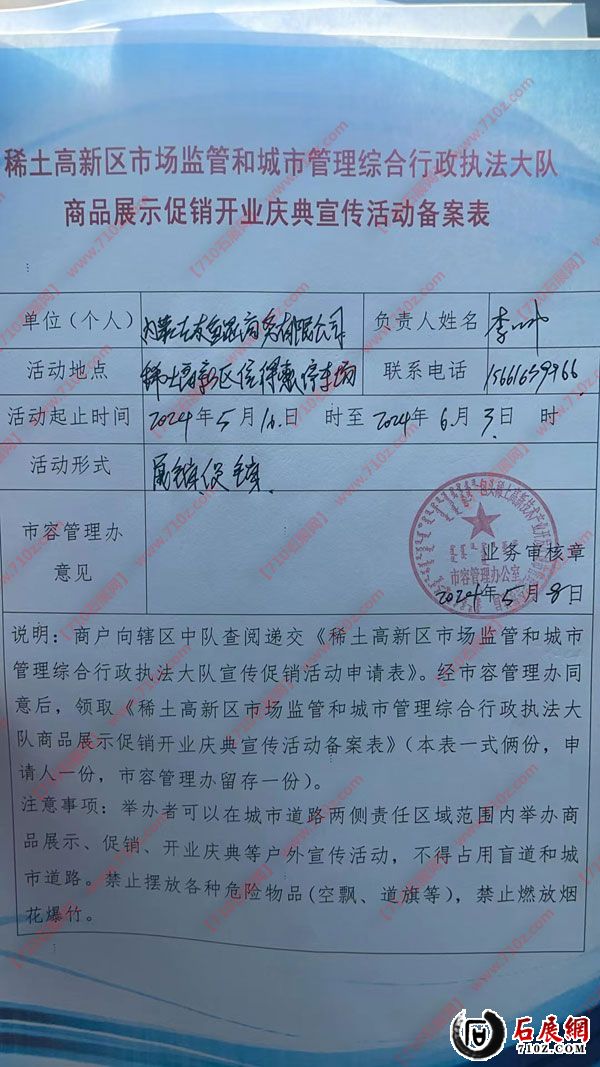 稀土高新区市场监管和城市管理综合行政执法大队
商品展示促销开业庆典宣传活动备案表
单位(个人)
商务有限公司
负责人姓名
李
活动地点
稀土高新区信得惠停车场
联系电话
活动起止时间
2024年5月16日 时至2024年6月3日 时
活动形式
展销促销
市容管理办
意见
包头稀土高新技术产业开发区
市容管理办公室
业务审核章
2024年5月8日
说明：商户向辖区中队查阅递交《稀土高新区市场监管和城市
管理综合行政执法大队宣传促销活动申请表》。经市容管理办同
意后，领取《稀土高新区市场监管和城市管理综合行政执法大
队商品展示促销开业庆典宣传活动备案表》(本表一式俩份，申
请人一份，市容管理办留存一份)。
注意事项：举办者可以在城市道路两侧责任区域范围内举办商
品展示、促销、开业庆典等户外宣传活动，不得占用盲道和城
市道路。禁止摆放各种危险物品(空飘、道旗等)，禁止燃放烟
花爆竹。
【710石展网】www.710z.com
石展網
710Z.COM